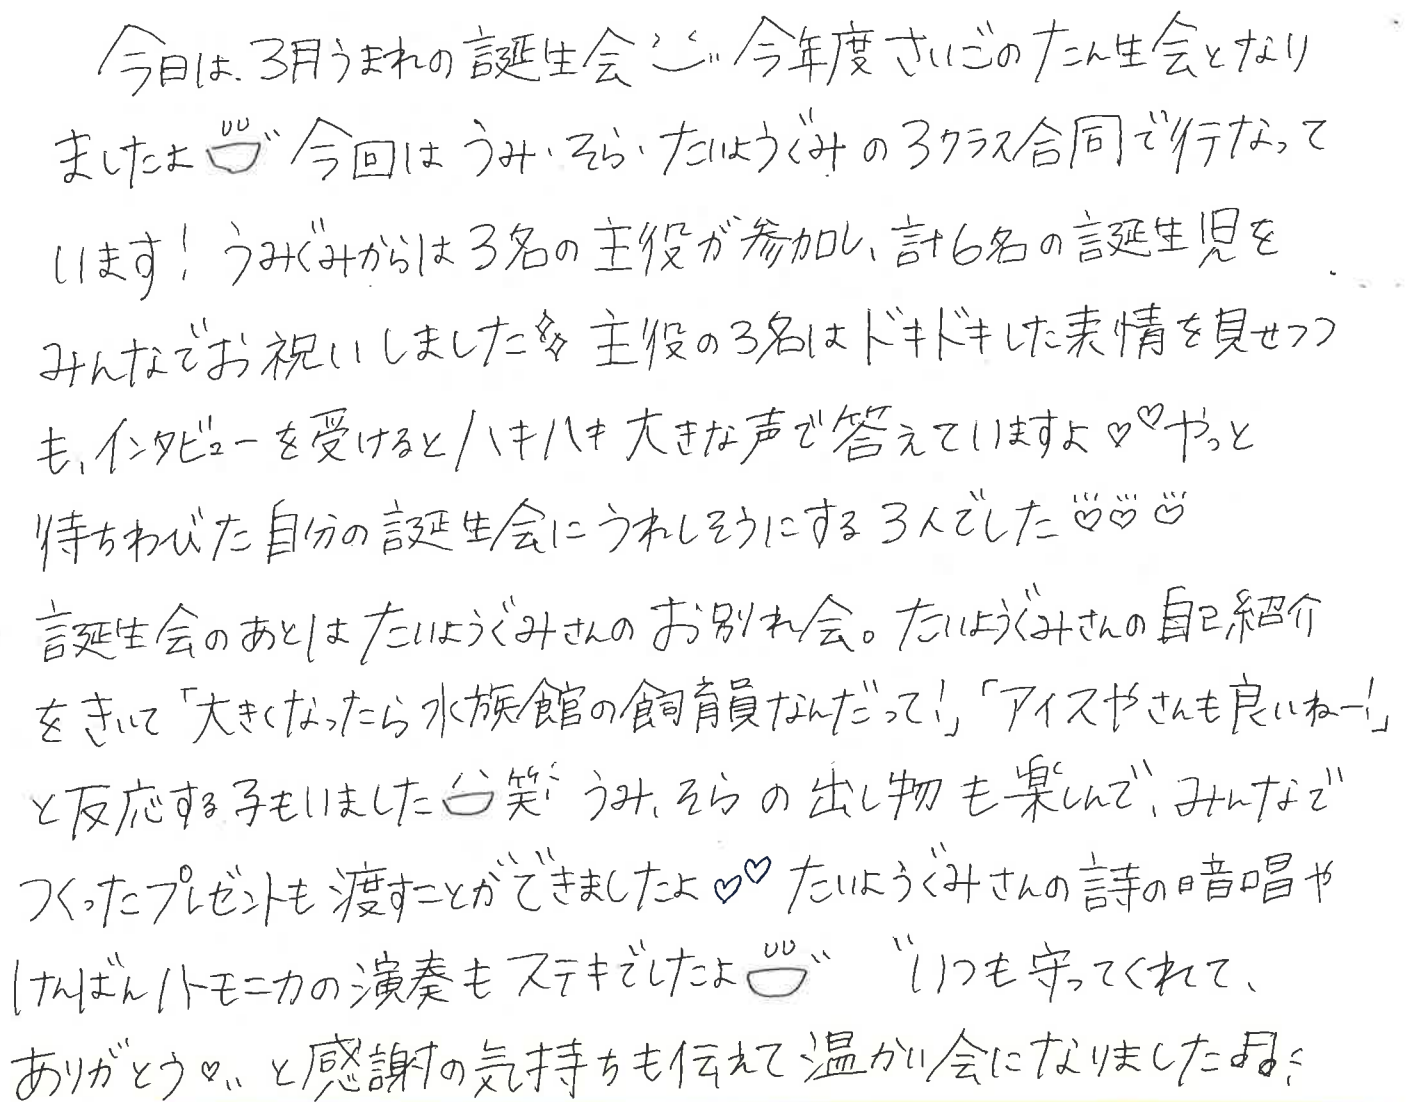 今日は、3月うまれの誕生会 今年度さいごのたん生会となり
ましたよ 今回はうみ・そら・たいようぐみの3クラス合同で行なって
います！うみぐみからは3名の主役が参加し、計6名の誕生児を
みんなでお祝いしました 主役の3名はドキドキした表情を見せつつ
も、インタビューを受けるとハキハキ大きな声で答えていますよ♡♡やっと
待ちわびた自分の誕生会にうれしそうにする3人でした♡♡♡
誕生会のあとはたいようぐみさんのお別れ会。たいようぐみさんの自己紹介
をきいて「大きくなったら水族館の飼育員なんだって！」「アイスやさんも良いねー！」
と反応する子もいました 笑 うみ、そらの出し物も楽しんで、みんなで
つくったプレゼントも渡すことができましたよ♡♡ たいようぐみさんの詩の暗唱や
けんばんハーモニカの演奏もステキでしたよ "いつも守ってくれて、
ありがとう♡" と感謝の気持ちも伝えて温かい会になりました♫